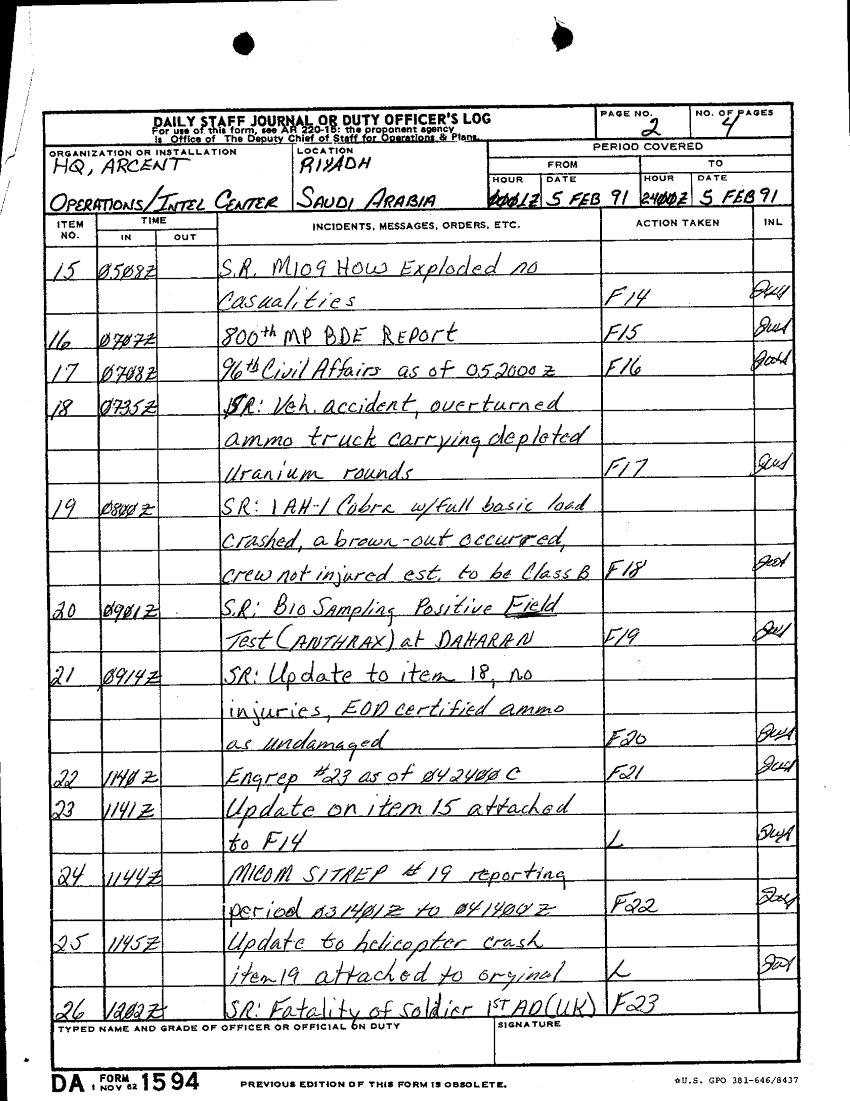 DAILY STAFF JOURNAL OR DUTY OFFICER'S LOG
For use of this form, see AR 220-15: the proponent agency
is Office of The Deputy Chief of Staff for Operations & Plans.
PAGE NO.
2
NO. OF PAGES
4
ORGANIZATION OR INSTALLATION
HQ, ARCENT
OPERATIONS/INTEL CENTER
LOCATION
RIYADH
SAUDI ARABIA
PERIOD COVERED
FROM TO
HOUR DATE HOUR DATE
0001Z 5 FEB 91 2400Z 5 FEB 91
ITEM NO. TIME IN OUT INCIDENTS, MESSAGES, ORDERS, ETC. ACTION TAKEN INL
15 0508Z S.R. M109 How Exploded no
Casualities F14
16 0707Z 800th MP BDE REPORT F15
17 0708Z 96th Civil Affairs as of 052000Z F16
18 0735Z SR: Veh. accident, overturned
ammo truck carrying depleted
Uranium rounds F17
19 0800Z SR: 1 AH-1 Cobra w/full basic load
crashed, a brown-out occurred,
crew not injured est. to be Class B F18
20 0901Z S.R: Bio Sampling Positive Field
Test (ANTHRAX) at DAHARAN F19
21 0914Z SR: Update to item 18, no
injuries, EOD certified ammo
as undamaged F20
22 1140Z Engrep #23 as of 042400C F21
23 1141Z Update on item 15 attached
to F14 L
24 1144Z MICOM SITREP # 19 reporting
period 031401Z to 041400Z F22
25 1145Z Update to helicopter crash
item 19 attached to orginal L
26 1202Z SR: Fatality of soldier 1ST AD (UK) F23
TYPED NAME AND GRADE OF OFFICER OR OFFICIAL ON DUTY
SIGNATURE
DA FORM 1 NOV 62 1594
PREVIOUS EDITION OF THIS FORM IS OBSOLETE.
☆U.S. GPO 381-646/8437